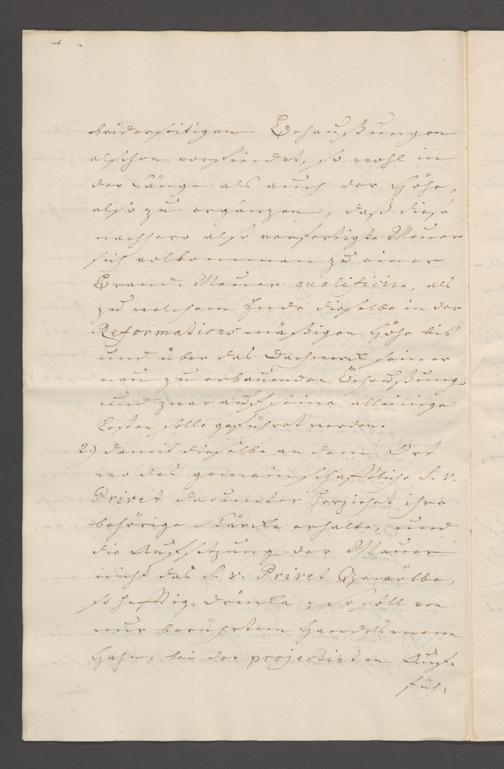 beiderseitigen Behaußungen
alschon vorfindet, so wohl in
der Länge als auch der Höhe,
also zu ergänzen, daß diese
nachhero also verfertigte Mauer
sich vollkommen zu einer
Brand-Mauer qualificire, als
zu welchem Ende dieselbe in der
Reformations mäßigen Höhe bis
und über das Dachwerck seiner
neu zu erbauenden Behaußung,
und zwar auf seine alleinige
Kosten solle geführet werden.
2.) damit dieselbe an dem Ort
wo das gemeinschafftliche S. v.
Privet darunter herziehet ihre
behörige Stärcke erhalte, und
die Aufsetzung der Mauer
nicht das S. v. Privet Gewölbe,
so hefftig drücke, so soll von
nur berührtem Handelsmann
Hahn, bei der projectirten Auf-
füh-